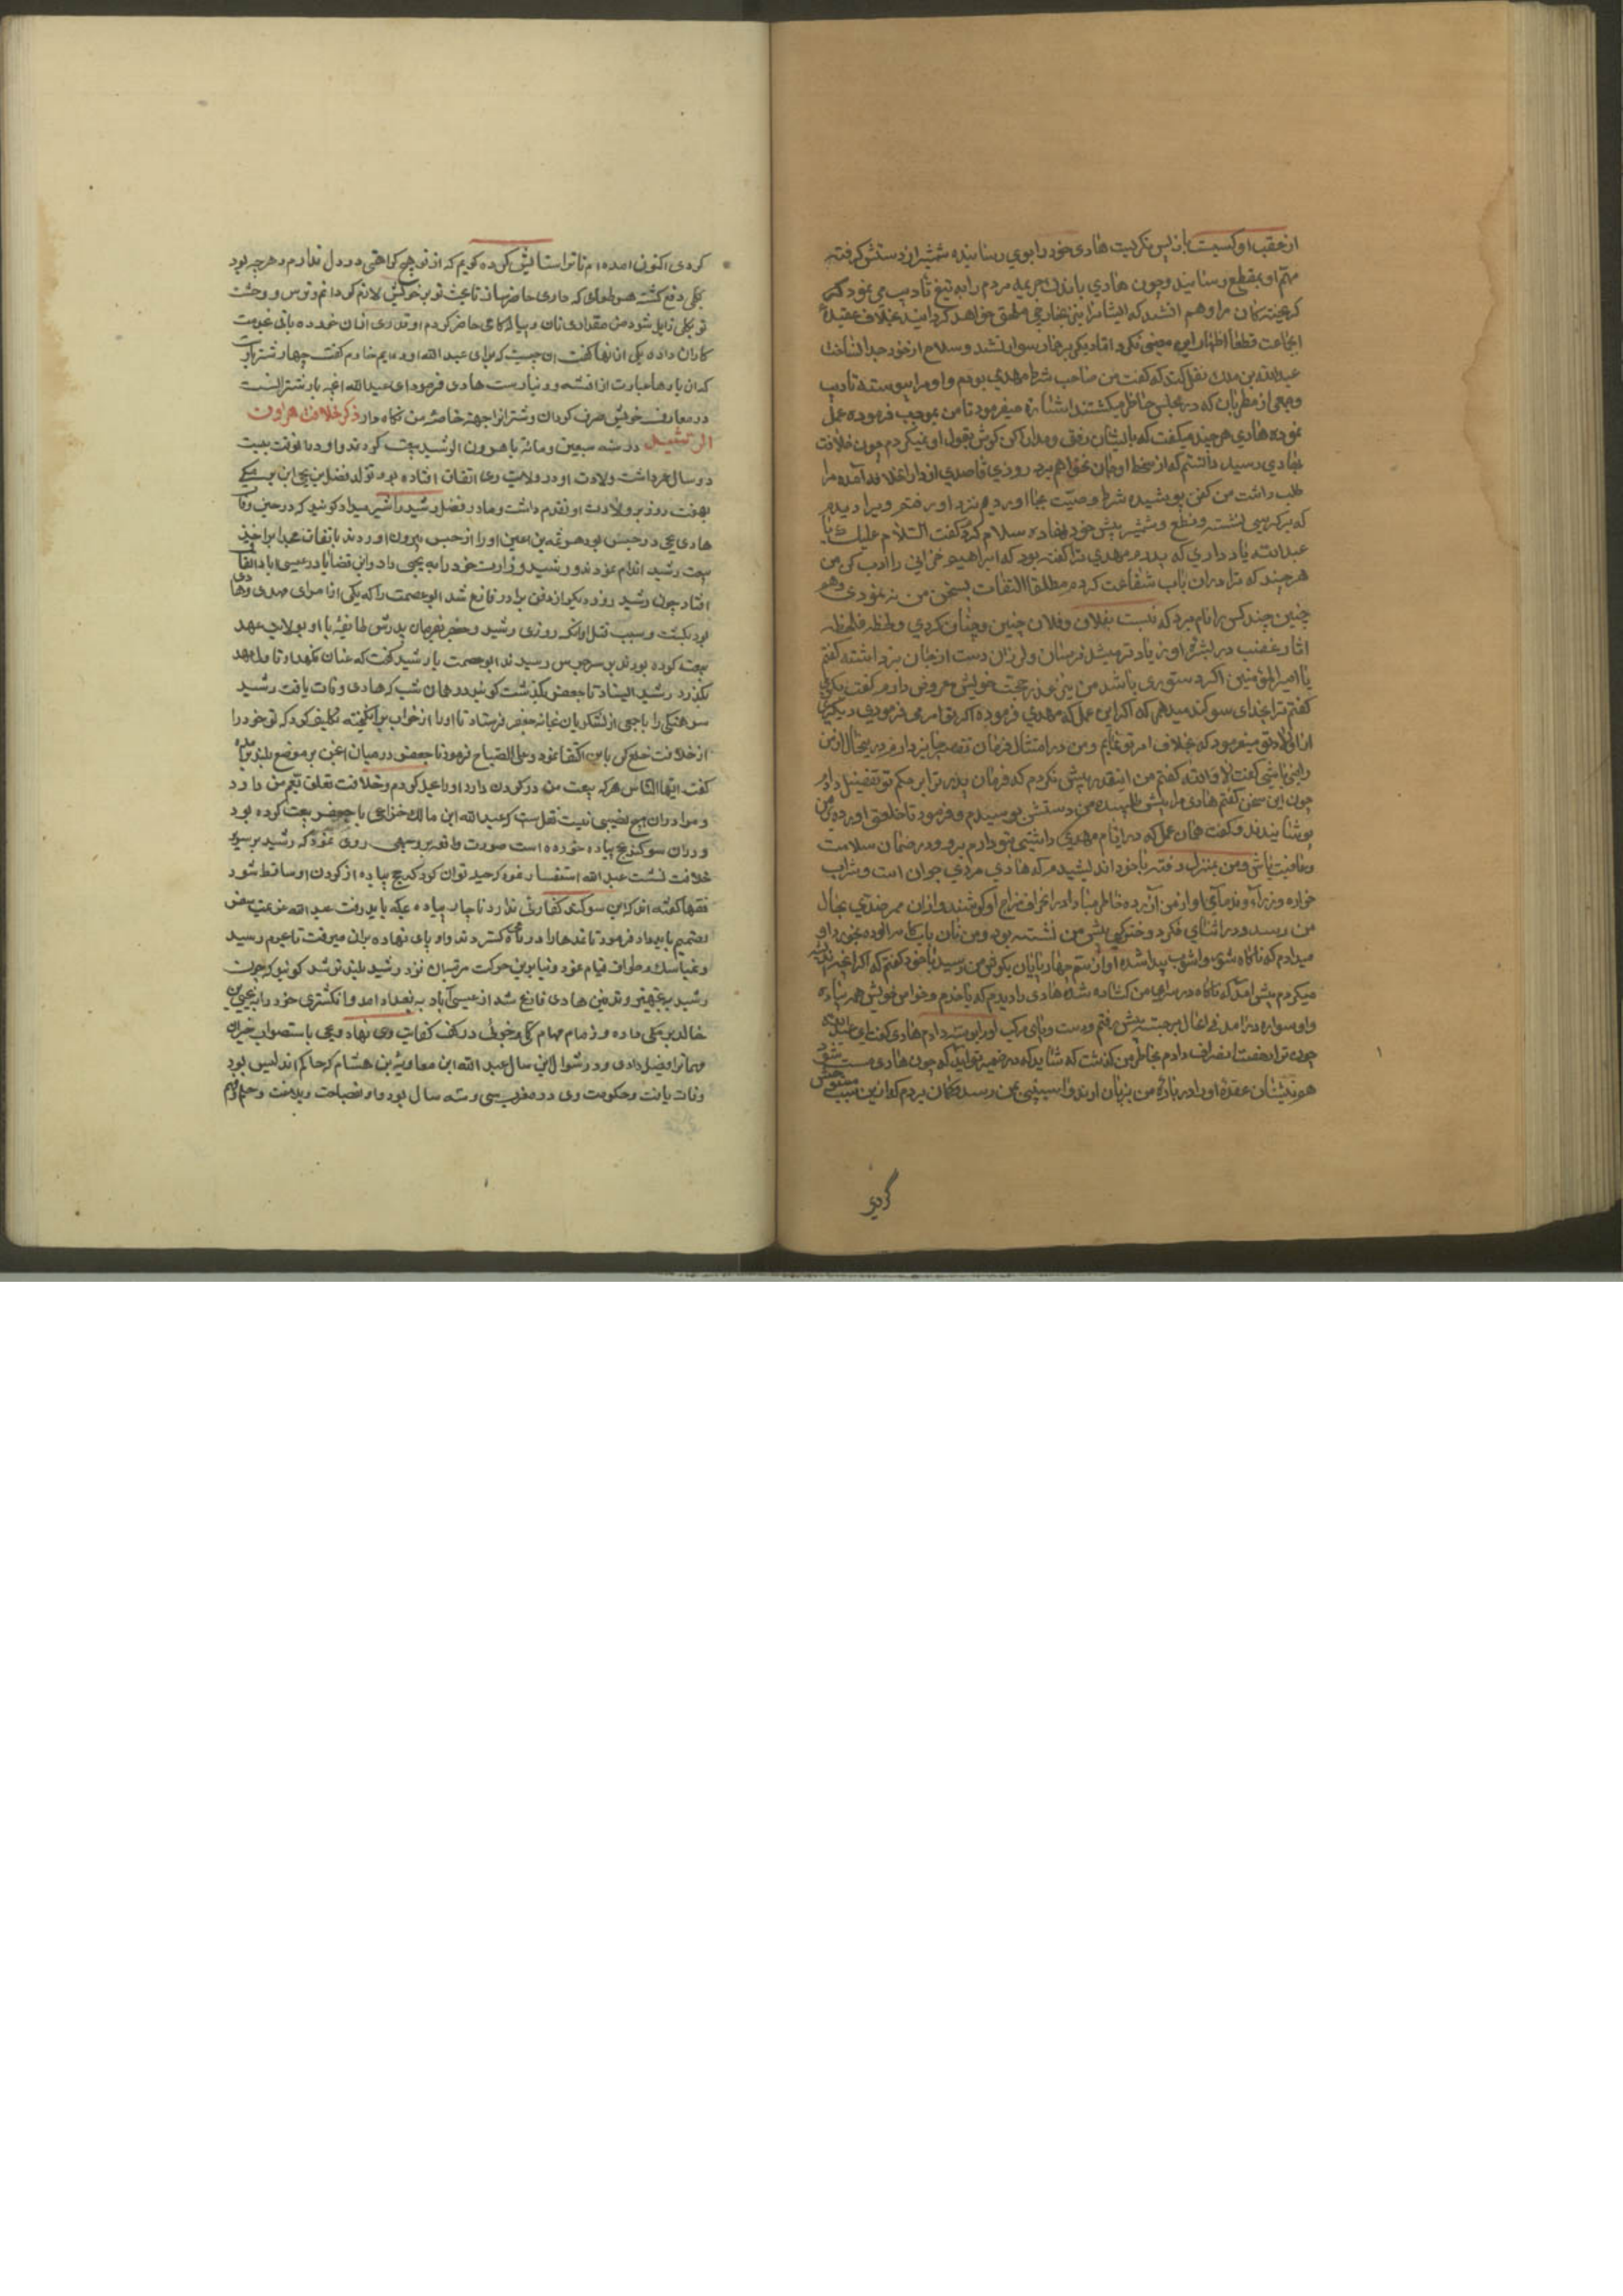 از عقب او کسیت باز پس نکریست هادی خود را بوی رسانیده شمشیر از دستش کرفته
مهم او بقطع رسانید و چون هادی باندک جریمه مردم را به تیغ تادیب می نمود
جماعت قطعا اظهار این معنی نکرد اما دیکر بر حمار سوار نشد و سلاح از خود جدا نساخت
عبدالله بن مالک نقل کند که کفت من صاحب شرط مهدی بودم و او مرا پیوسته تادیب
وجمعی از مطربان که در مجلس حاظر میکشتند اشاره میفرمود تا من بموجب فرموده عمل
نموده هادی هر چند میکفت که بایشان رفق و مدارا کن کوش بقول او نمیکردم چون خلافت
بهادی رسید دانستم که از سخط او جان نخواهم برد روزی قاصدی از دار الخلافه آمده مرا
طلب داشت من کفن پوشیده شرط وصیت بجا اوردم نزد او رفتم ویرا دیدم
که بر کرسی نشسته ونطع وشمشیر پیش خود نهاده سلام کردم کفت السلام علیک یا
عبدالله یاد داری که پدرم مهدی ترا کفته بود که ابراهیم حرانی را ادب کن من
هر چند که ترا در ان باب شفاعت کردم مطلقا التفات بسخن من نه نمودی وهم
چنین چند کس را نام برد که نسبت بفلان وفلان چنین وچنان کردی ولحظه فلحظه
اثار غضب در بشرهٔ او زیادتر میشد من ترسان ولرزان دست از جان برداشته کفتم
یا امیر المؤمنین اکر دستوری باشد من نیز عذر حجت خویش معروض دارم کفت بکوی
کفتم ترا بخدای سوکند میدهم که اکر این عمل که مهدی فرموده اکر تو امر می فرمودی ودیکری
از اولاد تو میفرمود که بخلاف امر تو نمایم ومن در امتثال فرمان تقصیر جایز دارم در ینحال از من
راضی باشی کفت لا والله کفتم من اینقدر پیش نکردم که فرمان پدر ترا بر حکم تو تفضیل دادم
چون این سخن کفتم هادی مرا پیش طلبیده من دستش بوسیدم وفرمود تا خلعتی اورده بر من
پوشانیدند وکفت همان عمل که در ایام مهدی داشتی بتو دارم برو ودر ضمان سلامت
وعافیت باش ومن بمنزل رفته با خود اندیشیدم که هادی مردی جوان است وشراب
من رسد ودر اثنای فکر دخترکی پیش من نشسته بود ومن نان باب کامه الوده بخورد او
میدادم که ناکاه شور واشوب پیدا شده آواز سم چهار پایان بکوش من رسید با خود کفتم که اکر اغچه اندیشه
میکردم پیش امد که ناکاه در سرای من کشاده شده هادی را دیدم که با خدم وخواص خویش همه پیاده
واو سواره در امد فی الحال بر جسته پیش رفتم ودست وپای مرکب او را بوسه دادم هادی کفت ای عبدالله
چون ترا رخصت انصراف دادم بخاطر من کذشت که شاید که در ضمیر تو اید که چون هادی مست شود
هم نشینان عقدهٔ او را در بارهٔ من بزیان ارند واسیبی بمن رسد وکمان بردم که از این سبب متوحش
کردی
کردی اکنون امده ام تا ترا استایش کرده کویم که از تو هیچ کراهتی در دل ندارم وهر چه بود
بکلی دفع کشته هر طعامی که داری حاضر ساز تا
تو بکلی زایل شود من مقداری نان وپیاله کامه حاضر کردم او قدری از ان خورده
کاران داده یکی از انها کفت ان چیست که برای عبد الله اورده ایم خادم کفت چهار شتر بار
که ان بارها عبارت از اقمشه ودینار است هادی فرمود ای عبدالله اغچه بار شتر انست
در مصارف خویش صرف کردان وشتر انرا جهة خاصه من نکاه دار ذکر خلافت هارون
الرشید در سنه سبعین ومائه با هرون الرشید بیعت کردند واو در انوقت بیست
دو سال عمر داشت ولادت او در ولایت ری اتفاق افتاده بود وتولد فضل بن یحیی ابن برمکی
بهفت روز بر ولادت او تقدم داشت ومادر فضل رشید را شیر میداد کویند که در حین وفات
هادی یحیی در حبس بود هرثمه بن اعین او را از حبس بیرون اوردند باتفاق
بیعت رشید اقدام نمودند ورشید وزارت خود را به یحیی داد واین قضایا در عیسی اباد اتفاق
افتاد چون رشید روز دیکر از دفن برادر فارغ شد ابو عصمت را که یکی از امرای مهدی وهادی
بود بکشت وسبب قتل او انکه روزی رشید وجعفر بفرمان پدرش طایفهٔ با او بولایت عهد
بیعت کرده بودند بر سر جسر رسیدند ابو عصمت با رشید کفت که عنان نکهدار تا ولیعهد
بکذرد رشید ایستاد تا جعفر بکذشت کویند در همان شب که هادی وفات یافت رشید
سرهنکی را با جمعی از لشکریان بخانه جعفر فرستاد تا او را از خواب برانکیخته تکلیف کرد که تو خود را
از خلافت خلع کن باین اکتفا نمود وعلی الصباح فرمود تا جعفر در میان انجمن بر موضع بلند بر آمد
کفت ایها الناس هر که بیعت من در کردن دارد او را بحل کردم وخلافت تعلق بعم من دارد
ومرا در ان هیچ نصیبی نیست نقل است که عبد الله ابن مالک خزاعی با جعفر بیعت کرده بود
ودران سوکند بحج پیاده خورده است صورت واقعه بر وجهی روی نمود که رشید بر سریر
خلافت نشست عبد الله استفسار نمود که چه حیله توان کرد که حج پیاده از کردن او ساقط شود
فقها کفتند که این سوکند کفارتی ندارد ناچار پیاده بمکه باید رفت عبد الله
تصمیم داده فرمود تا نمدها را در راه کستردند واو پای نهاده بران میرفت تا بحرم رسید
وبمناسک وطواف قیام نمود وبنا برین حرکت مرتبه ان نزد رشید بلندتر شد کویند که چون
رشید بتجهیز وتدفین هادی فارغ شد از عیسی آباد به بغداد امد وانکشتری خود را به یحیی بن
خالد برمکی داده وزمام مهام کلی وجزوی در کف کفایت وی نهاد ویحیی باستصواب خیزران
مهمانرا فیصل دادی ودر شوال این سال عبد الله ابن معاویه بن هشام که حاکم اندلس بود
وفات یافت وحکومت وی در مغرب سی وسه سال بود واو بفصاحت وبلاغت وحلم وفهم